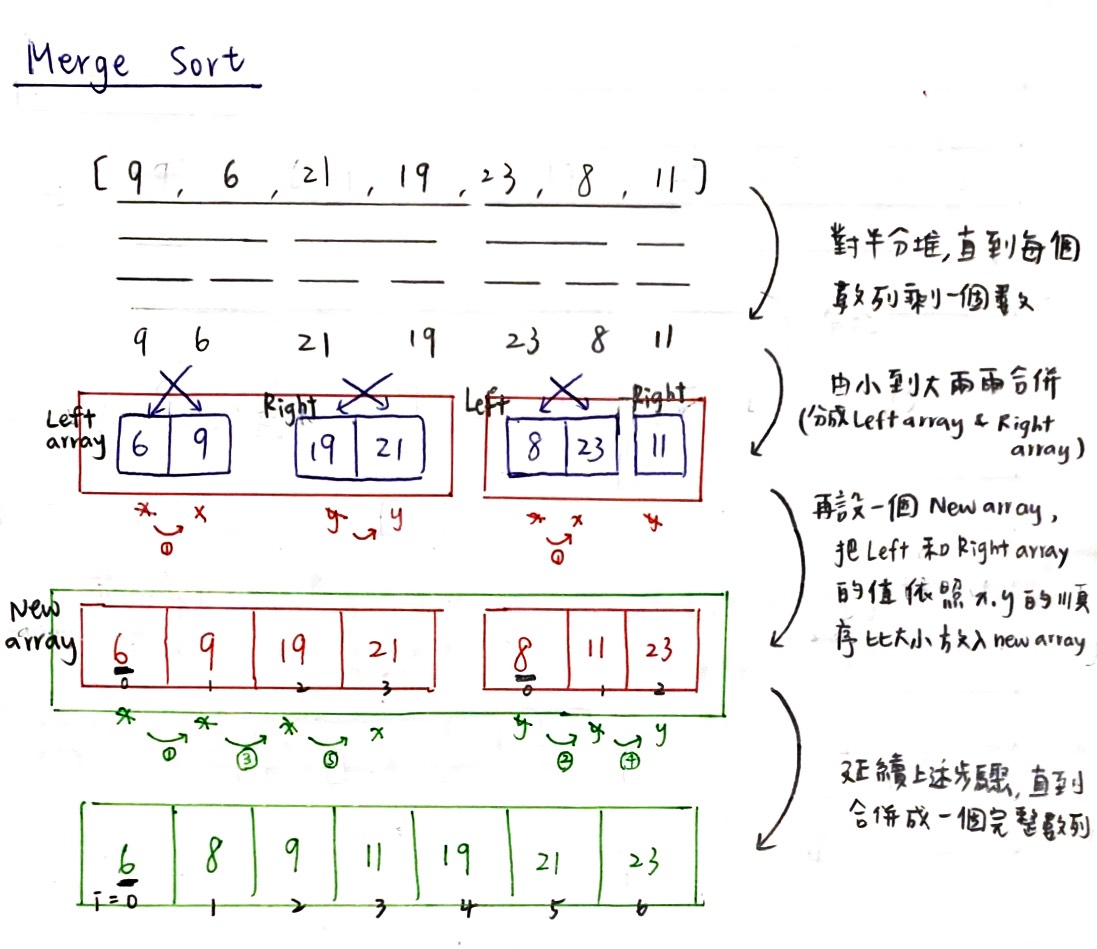 Merge Sort
[ 9 , 6 , 21 , 19 , 23 , 8 , 11 ]
對半分堆,直到每個
數列剩一個數
9 6 21 19 23 8 11
由小到大兩兩合併
(分成Left array & Right
array)
Left
array
Right
Left
Right
6 9 19 21 8 23 11
x x y y x x y
① ①
再設一個 New array,
把 Left 和 Right array
的值依照 x.y 的順
序比大小放入 new array
New
array
6 9 19 21 8 11 23
0 1 2 3 0 1 2
x x x x y y y
① ③ ⑤ ② ④
延續上述步驟,直到
合併成一個完整數列
6 8 9 11 19 21 23
i=0 1 2 3 4 5 6